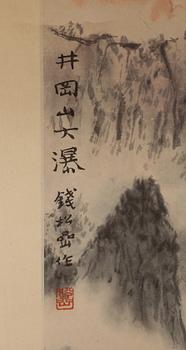 井岡山大瀑
錢松嵒作